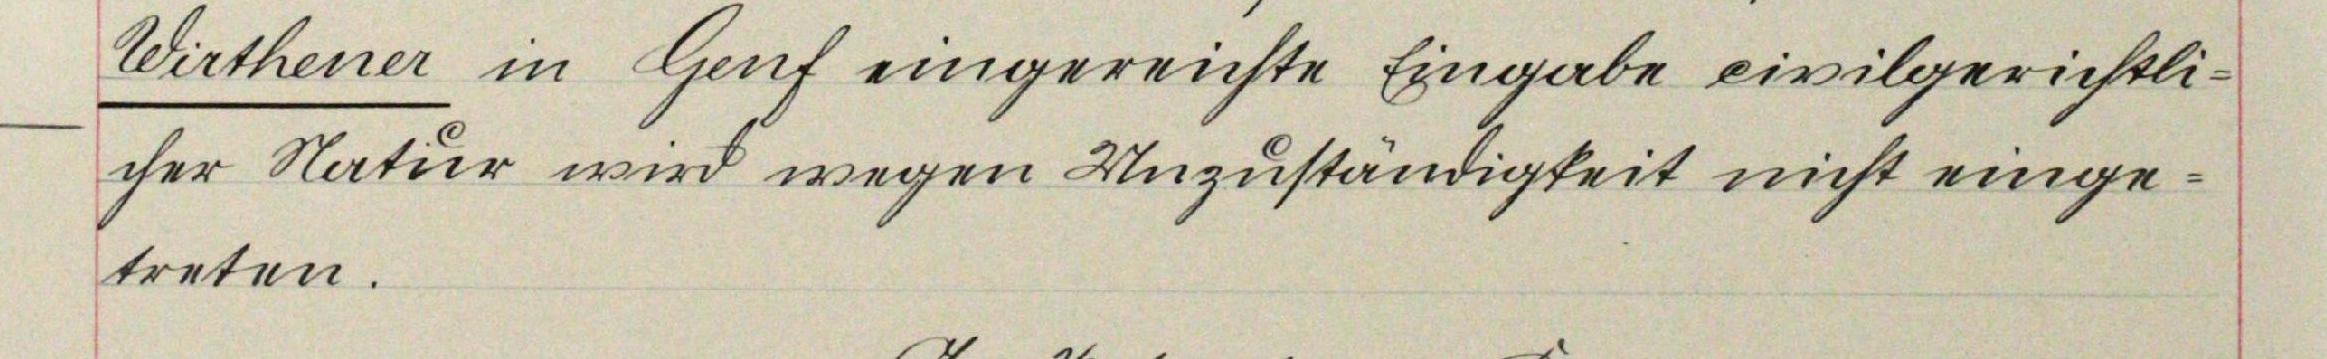 Wirthener in Genf eingereichte Eingabe civilgerichtli-
cher Natur wird wegen Unzuständigkeit nicht einge-
treten.